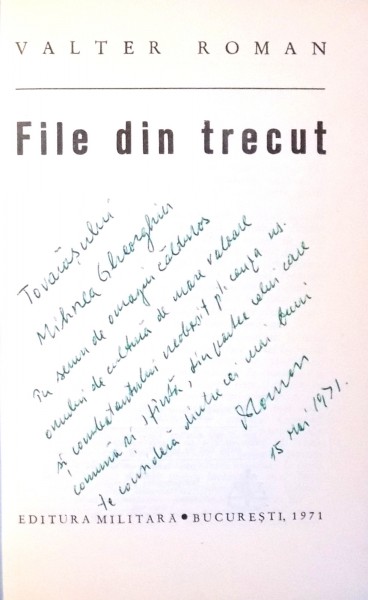 VALTER ROMAN
File din trecut
Tovarășului
Mihnea Gheorghiu
În semn de omagiu călduros
omului de cultură de mare valoare
și combatantului neobosit pt. cauza ns.
comună și sfîntă, din partea celui care
te consideră dintre cei mai buni
VRoman
15 Mai 1971.
EDITURA MILITARĂ • BUCUREȘTI, 1971